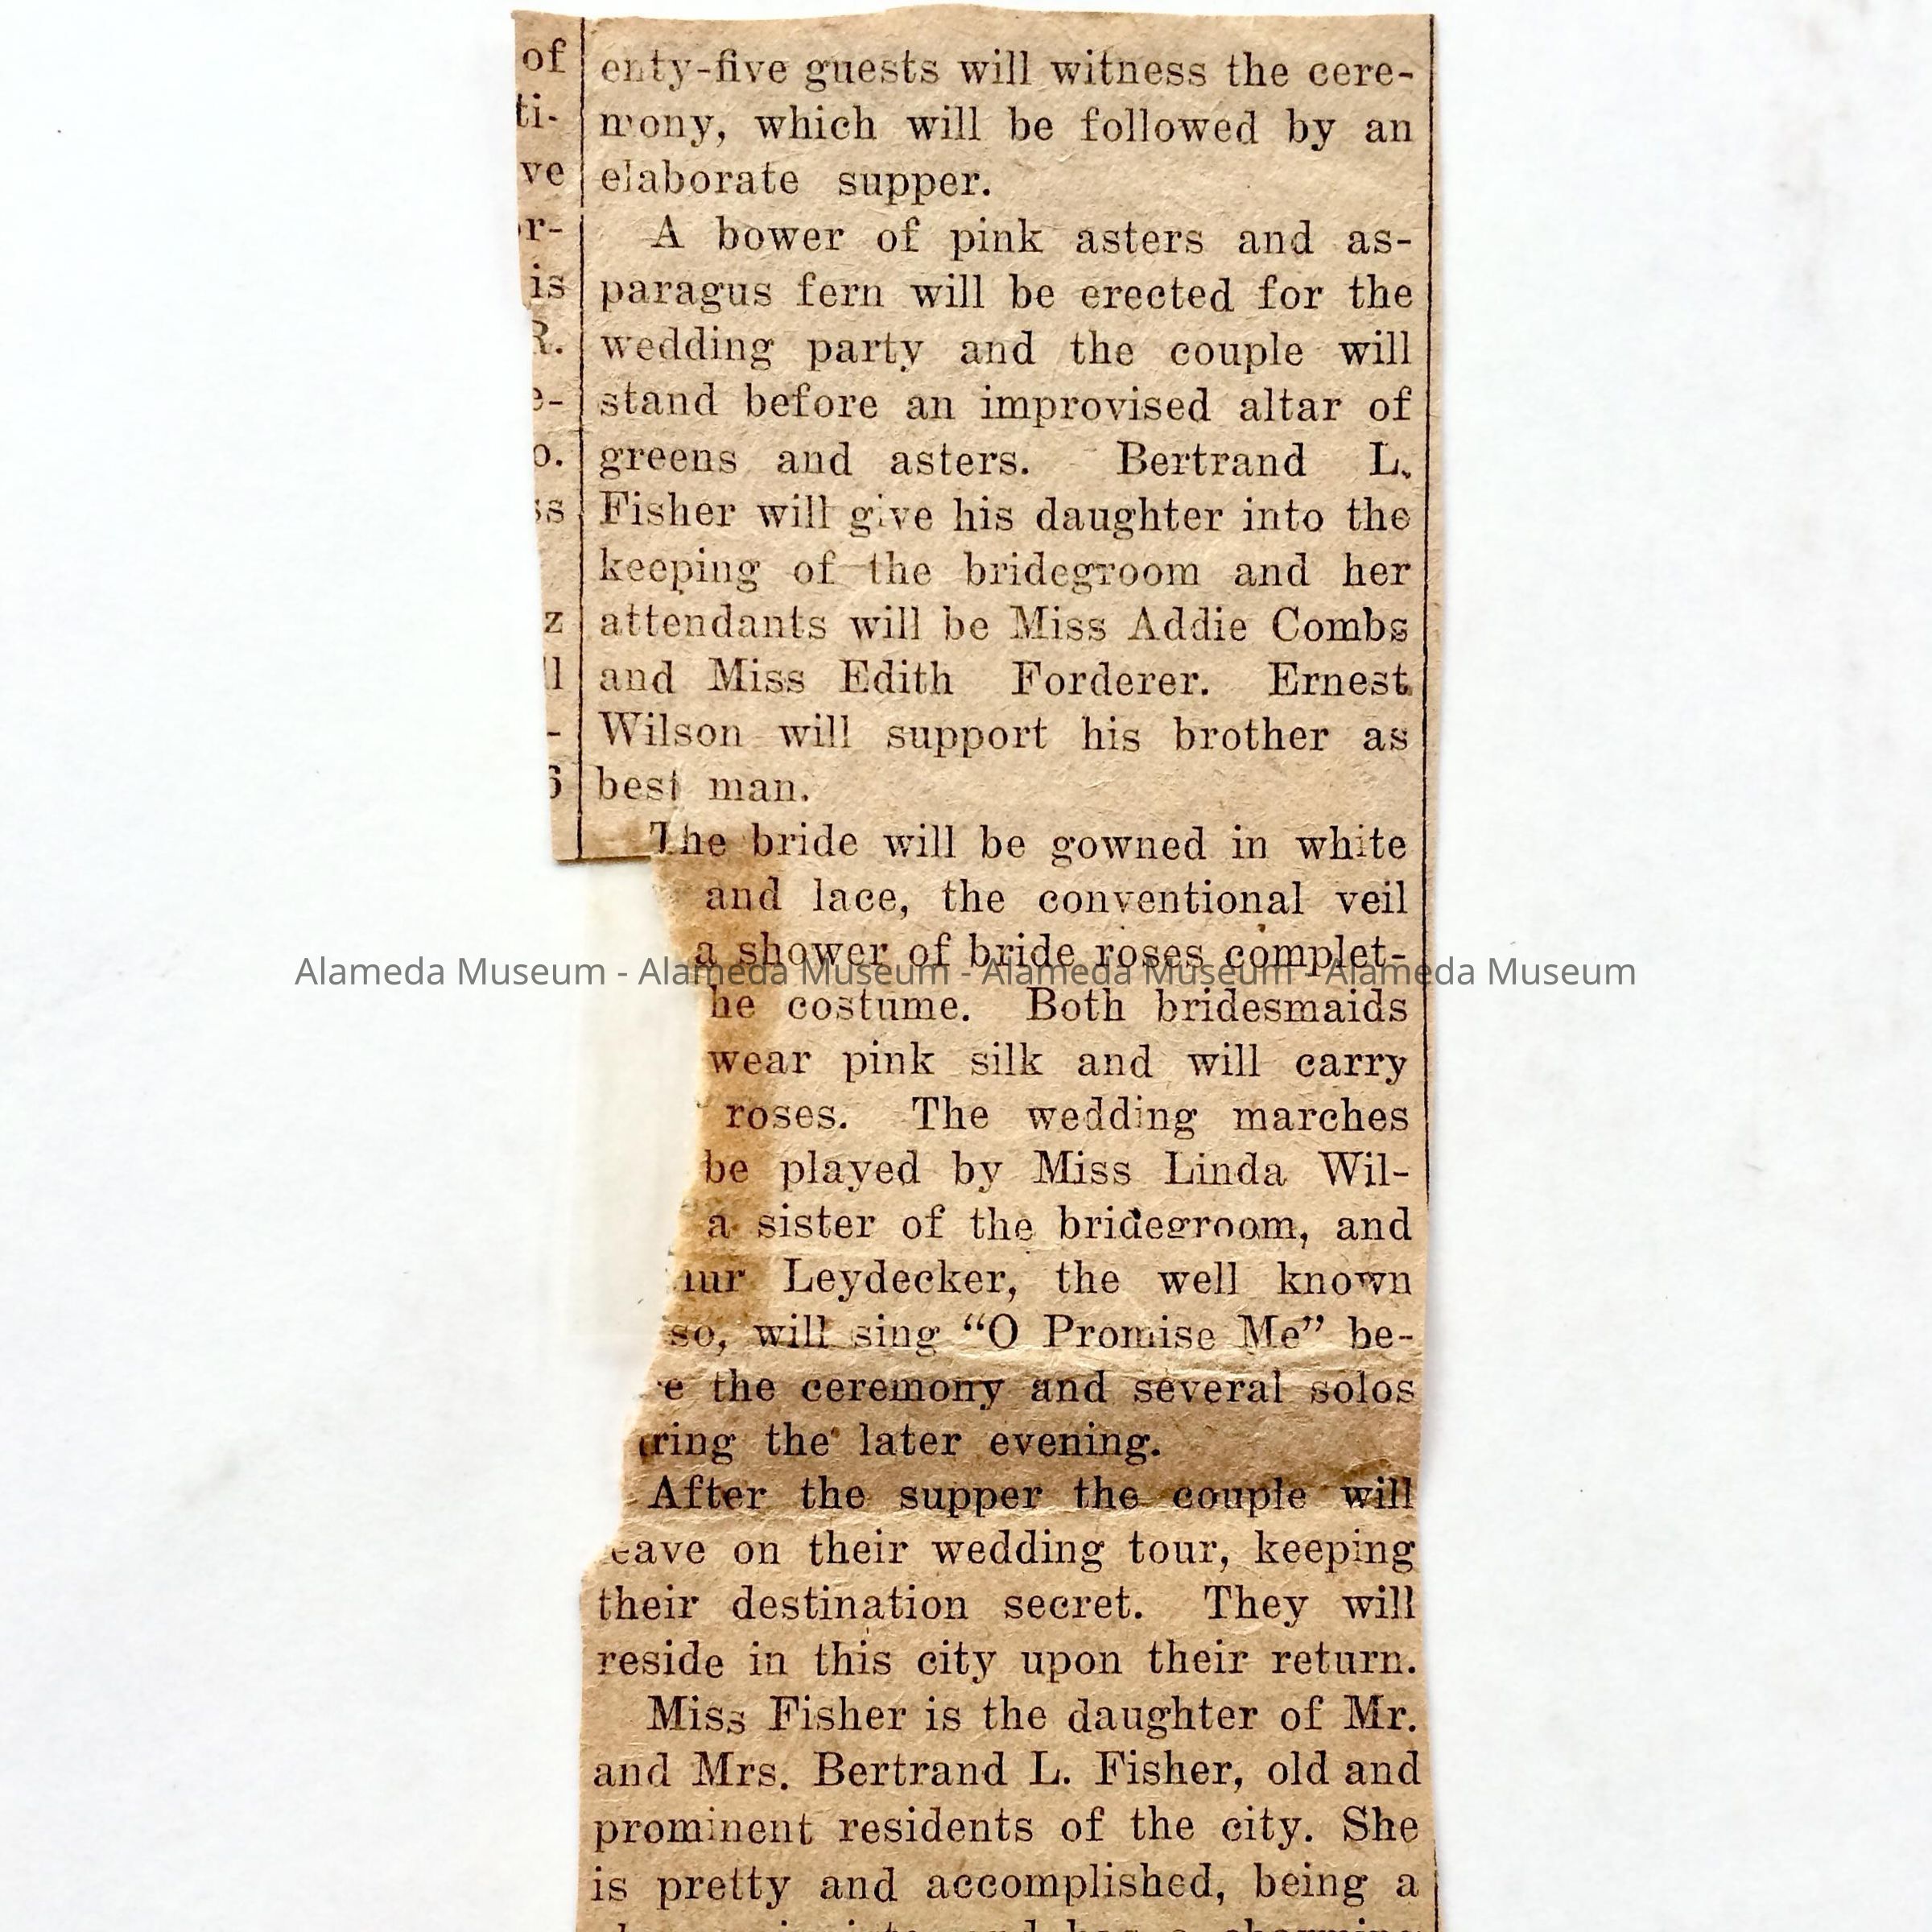 of
ti-
ve
r-
is
R.
e-
o.
ss
z
ll
-
6
enty-five guests will witness the cere-
mony, which will be followed by an
elaborate supper.
A bower of pink asters and as-
paragus fern will be erected for the
wedding party and the couple will
stand before an improvised altar of
greens and asters. Bertrand L.
Fisher will give his daughter into the
keeping of the bridegroom and her
attendants will be Miss Addie Combs
and Miss Edith Forderer. Ernest
Wilson will support his brother as
best man.
The bride will be gowned in white
and lace, the conventional veil
a shower of bride roses complet-
he costume. Both bridesmaids
wear pink silk and will carry
roses. The wedding marches
be played by Miss Linda Wil-
a sister of the bridegroom, and
hur Leydecker, the well known
so, will sing “O Promise Me” be-
e the ceremony and several solos
ring the later evening.
After the supper the couple will
eave on their wedding tour, keeping
their destination secret. They will
reside in this city upon their return.
Miss Fisher is the daughter of Mr.
and Mrs. Bertrand L. Fisher, old and
prominent residents of the city. She
is pretty and accomplished, being a
Alameda Museum - Alameda Museum - Alameda Museum - Alameda Museum